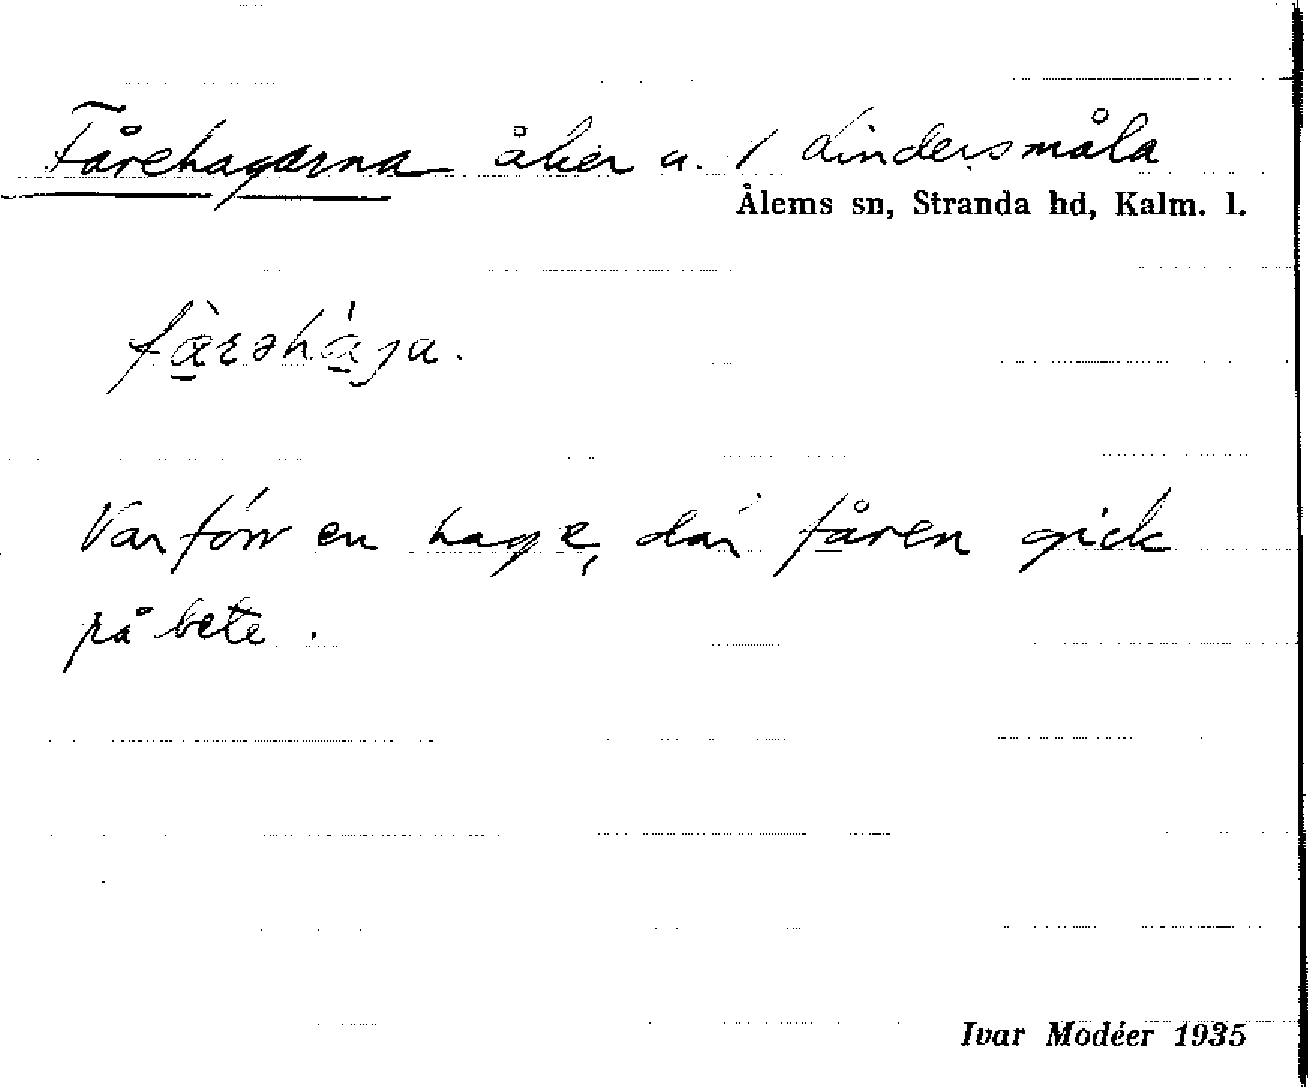 Fårehagarna åker u. / Lindersmåla
Ålems sn, Stranda hd, Kalm. l.
Var förr en hage, där fåren gick
på bete.
Ivar Modéer 1935